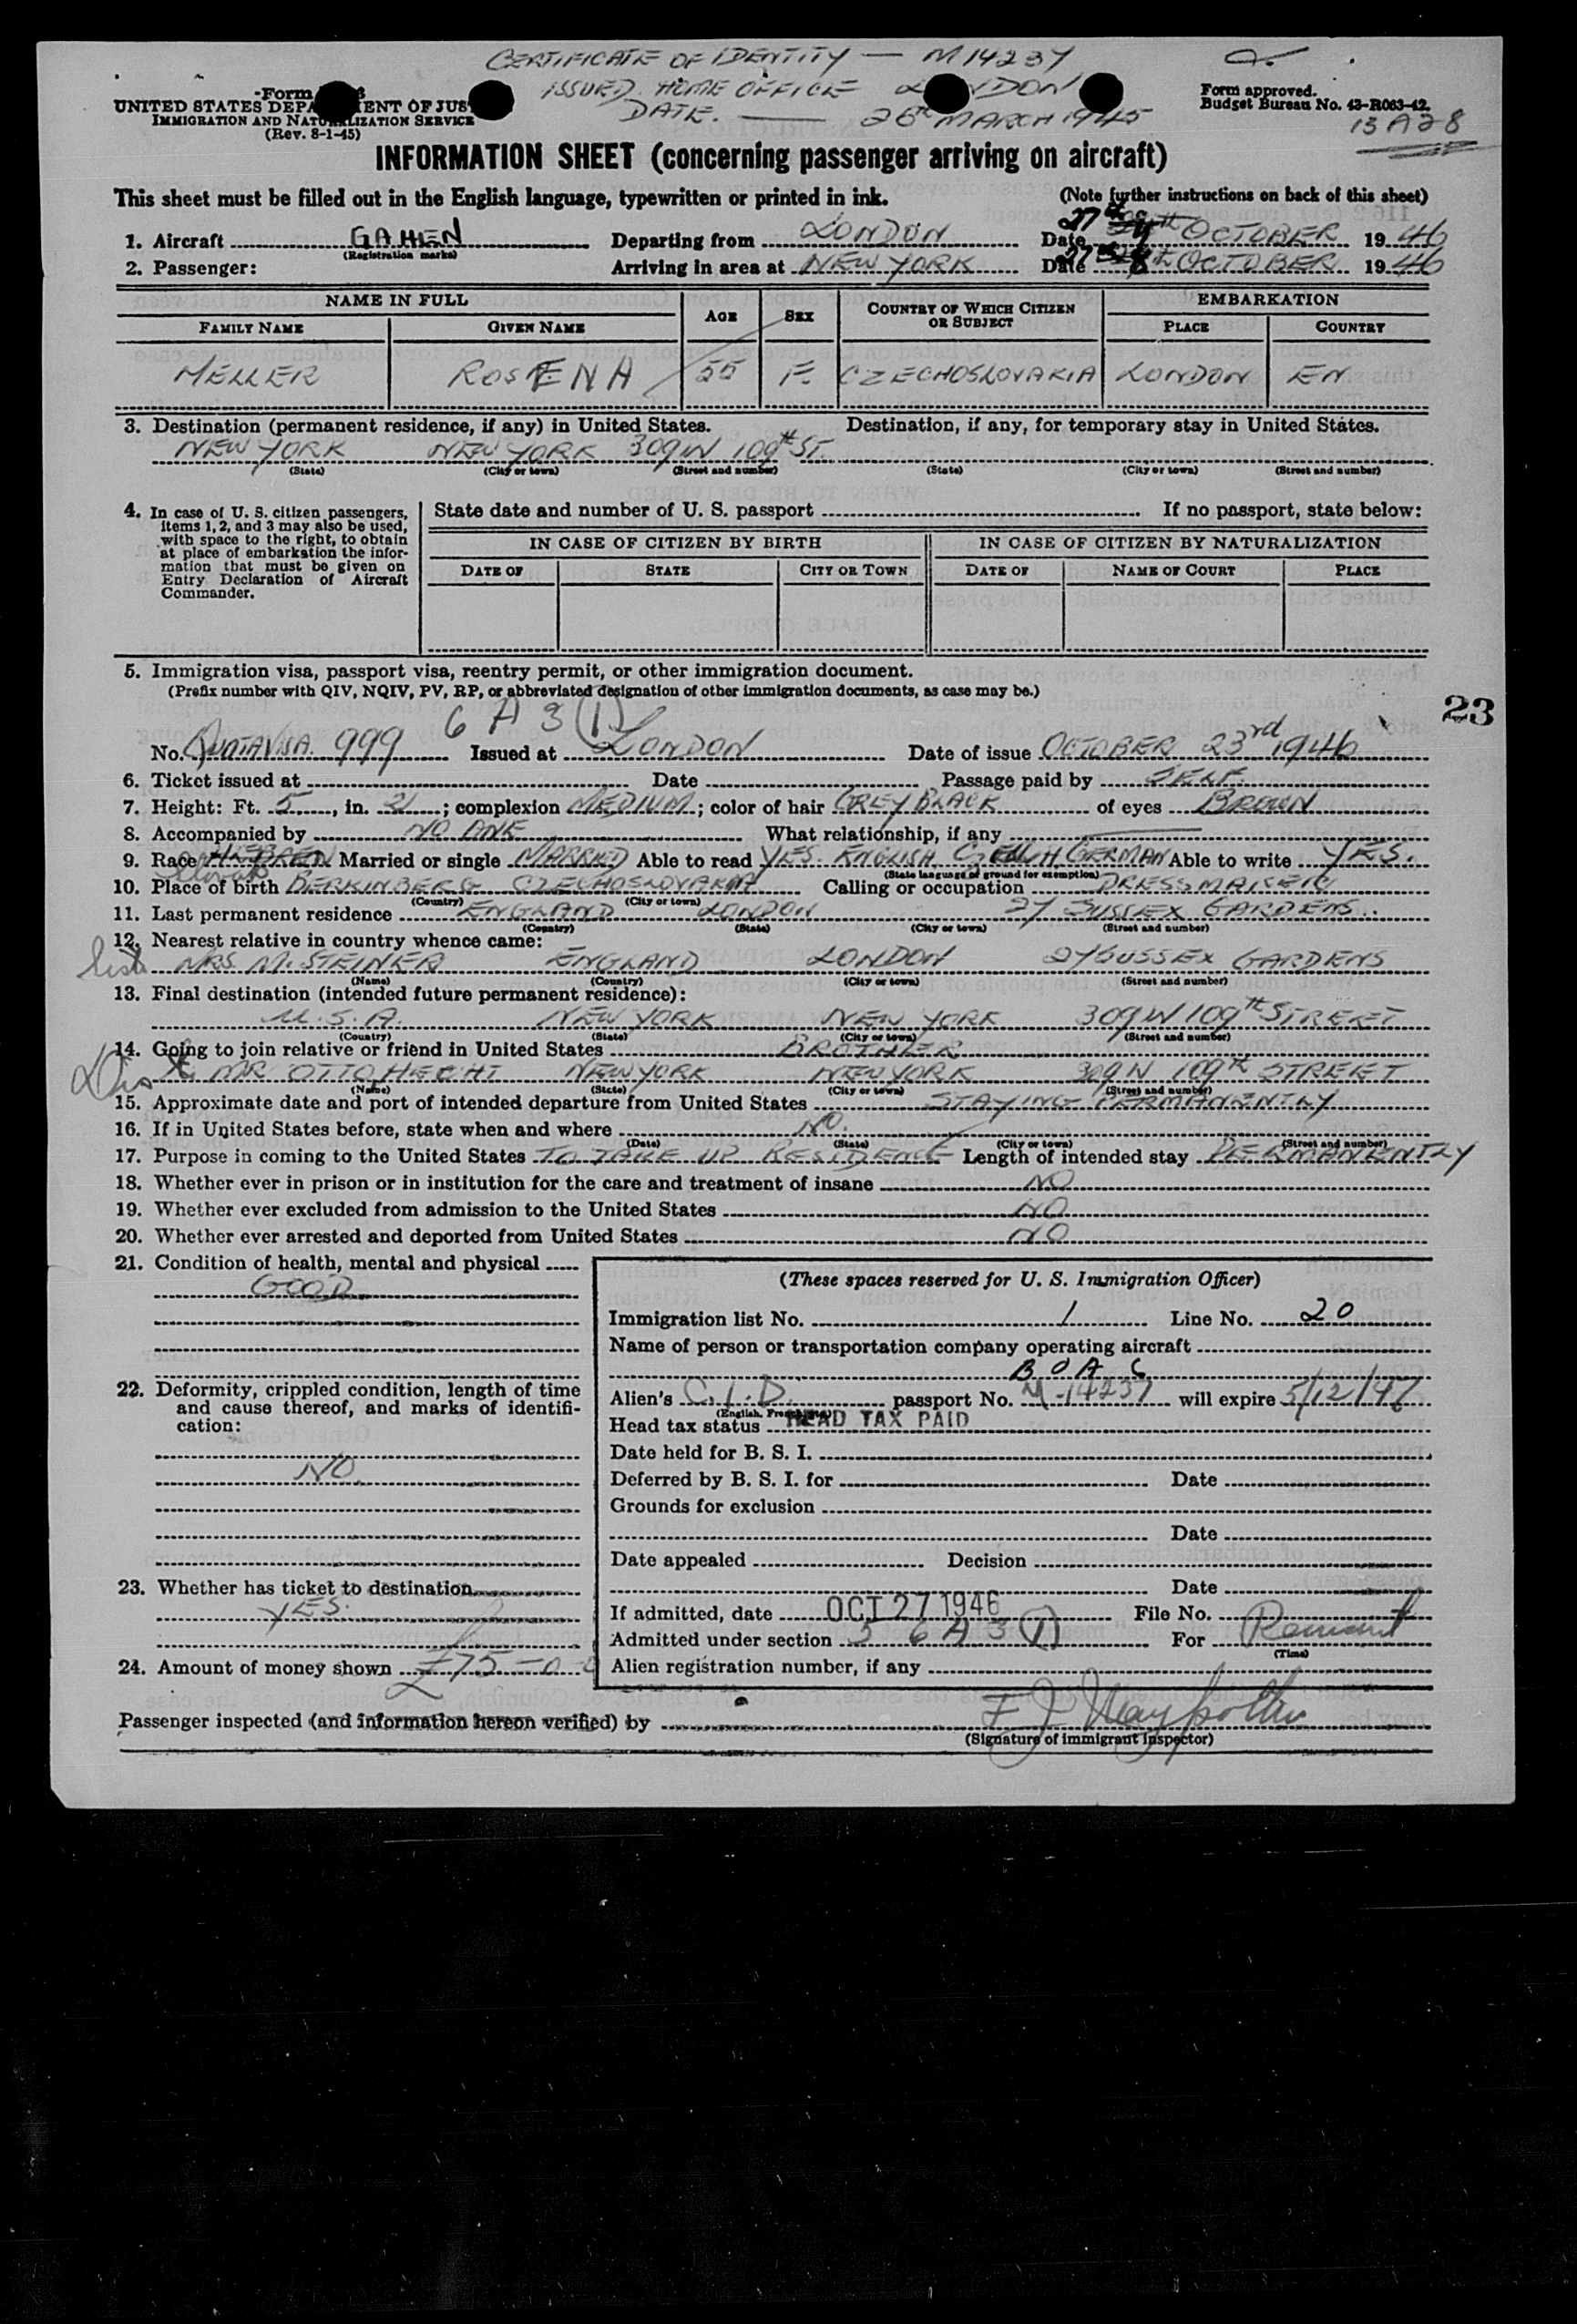 CERTIFICATE OF IDENTITY — M14237
ISSUED HOME OFFICE LONDON
DATE. — 26th MARCH 1945
Form
UNITED STATES DEPARTMENT OF JUS
IMMIGRATION AND NATURALIZATION SERVICE
(Rev. 8-1-45)
Form approved.
Budget Bureau No. 43-R063-42.
13 A 28
INFORMATION SHEET (concerning passenger arriving on aircraft)
This sheet must be filled out in the English language, typewritten or printed in ink. (Note further instructions on back of this sheet)
1. Aircraft GAHEN Departing from LONDON Date 27th OCTOBER 1946
(Registration marks)
2. Passenger: Arriving in area at NEW YORK Date 27 OCTOBER 1946
NAME IN FULL AGE SEX COUNTRY OF WHICH CITIZEN OR SUBJECT EMBARKATION
FAMILY NAME GIVEN NAME PLACE COUNTRY
MELLER ROSENA 55 F. CZECHOSLOVAKIA LONDON EN
3. Destination (permanent residence, if any) in United States. Destination, if any, for temporary stay in United States.
NEW YORK NEW YORK 309 W 109th ST.
(State) (City or town) (Street and number) (State) (City or town) (Street and number)
4. In case of U. S. citizen passengers, items 1, 2, and 3 may also be used, with space to the right, to obtain at place of embarkation the information that must be given on Entry Declaration of Aircraft Commander.
State date and number of U. S. passport If no passport, state below:
IN CASE OF CITIZEN BY BIRTH IN CASE OF CITIZEN BY NATURALIZATION
DATE OF STATE CITY OR TOWN DATE OF NAME OF COURT PLACE
5. Immigration visa, passport visa, reentry permit, or other immigration document.
(Prefix number with QIV, NQIV, PV, RP, or abbreviated designation of other immigration documents, as case may be.)
23
6 A 3 (1)
No. QUOTA VISA. 999 Issued at LONDON Date of issue OCTOBER 23rd 1946
6. Ticket issued at Date Passage paid by SELF.
7. Height: Ft. 5, in. 2; complexion MEDIUM; color of hair GREY BLACK of eyes BROWN
8. Accompanied by NO ONE What relationship, if any
9. Race HEBREW Married or single MARRIED Able to read YES. ENGLISH CZECH GERMAN Able to write YES.
(State language or ground for exemption)
Slovak
10. Place of birth BERKINBERG CZECHOSLOVAKIA Calling or occupation DRESSMAKER
(Country) (City or town)
11. Last permanent residence ENGLAND LONDON 27 SUSSEX GARDENS.
(Country) (State) (City or town) (Street and number)
12. Nearest relative in country whence came:
MRS M. STEINER ENGLAND LONDON 27 SUSSEX GARDENS
(Name) (Country) (City or town) (Street and number)
13. Final destination (intended future permanent residence):
U.S.A. NEW YORK NEW YORK 309 W 109th STREET
(Country) (State) (City or town) (Street and number)
14. Going to join relative or friend in United States BROTHER
MR OTTO HECHT NEW YORK NEW YORK 309 W 109th STREET
(Name) (State) (City or town) (Street and number)
15. Approximate date and port of intended departure from United States STAYING PERMANENTLY
16. If in United States before, state when and where NO.
(Date) (State) (City or town) (Street and number)
17. Purpose in coming to the United States TO TAKE UP RESIDENCE Length of intended stay PERMANENTLY
18. Whether ever in prison or in institution for the care and treatment of insane NO
19. Whether ever excluded from admission to the United States NO
20. Whether ever arrested and deported from United States NO
21. Condition of health, mental and physical
GOOD.
22. Deformity, crippled condition, length of time and cause thereof, and marks of identification:
NO.
23. Whether has ticket to destination
YES.
24. Amount of money shown £75-0-0
(These spaces reserved for U. S. Immigration Officer)
Immigration list No. 1 Line No. 20
Name of person or transportation company operating aircraft
B O A C
Alien's C.I.D. passport No. M-14237 will expire 5/12/47
(English, French, etc.)
Head tax status HEAD TAX PAID
Date held for B. S. I.
Deferred by B. S. I. for Date
Grounds for exclusion
Date
Date appealed Decision
Date
If admitted, date OCT 27 1946 File No.
Admitted under section 5 6 A 3 (1) For
(Time)
Alien registration number, if any
Passenger inspected (and information hereon verified) by
(Signature of immigrant inspector)